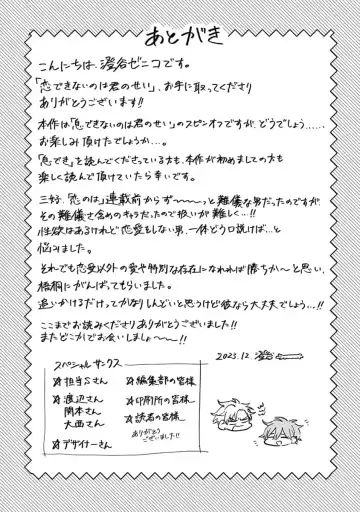 あとがき
こんにちは、澄谷ゼニコです。
「恋できないのは君のせい」、お手に取ってくださり
ありがとうございます!!
本作は「息できないのは君のせい」のスピンオフですが、どうでしょう……
お楽しみ頂けたでしょうか…。
「息でき」を読んでくださっている方も、本作が初めましての方も
楽しく読んで頂けていたら幸いです。
三好、「恋のは」連載前からず〜〜〜っと難儀な男だったのですが
その難儀さ含めのキャラだったので扱いが難しく…!!
性欲はあるけれど恋愛をしない男、一体どう口説けば…と
悩みました。
それでも恋愛以外の愛や特別な存在になれれば勝ちか〜と思い、
梧桐にがんばってもらいました。
追いかけるだけってかなりしんどいと思うけど彼なら大丈夫でしょう…!!
ここまでお読みくださりありがとうございました!!
またどこかでお会いしましょ〜!!
2023.12.澄谷
スペシャルサンクス
☆担当Sさん
☆渡辺さん
岡本さん
大西さん
☆デザイナーさん
☆編集部の皆様
☆印刷所の皆様
☆読者の皆様
ありがとうございました!!